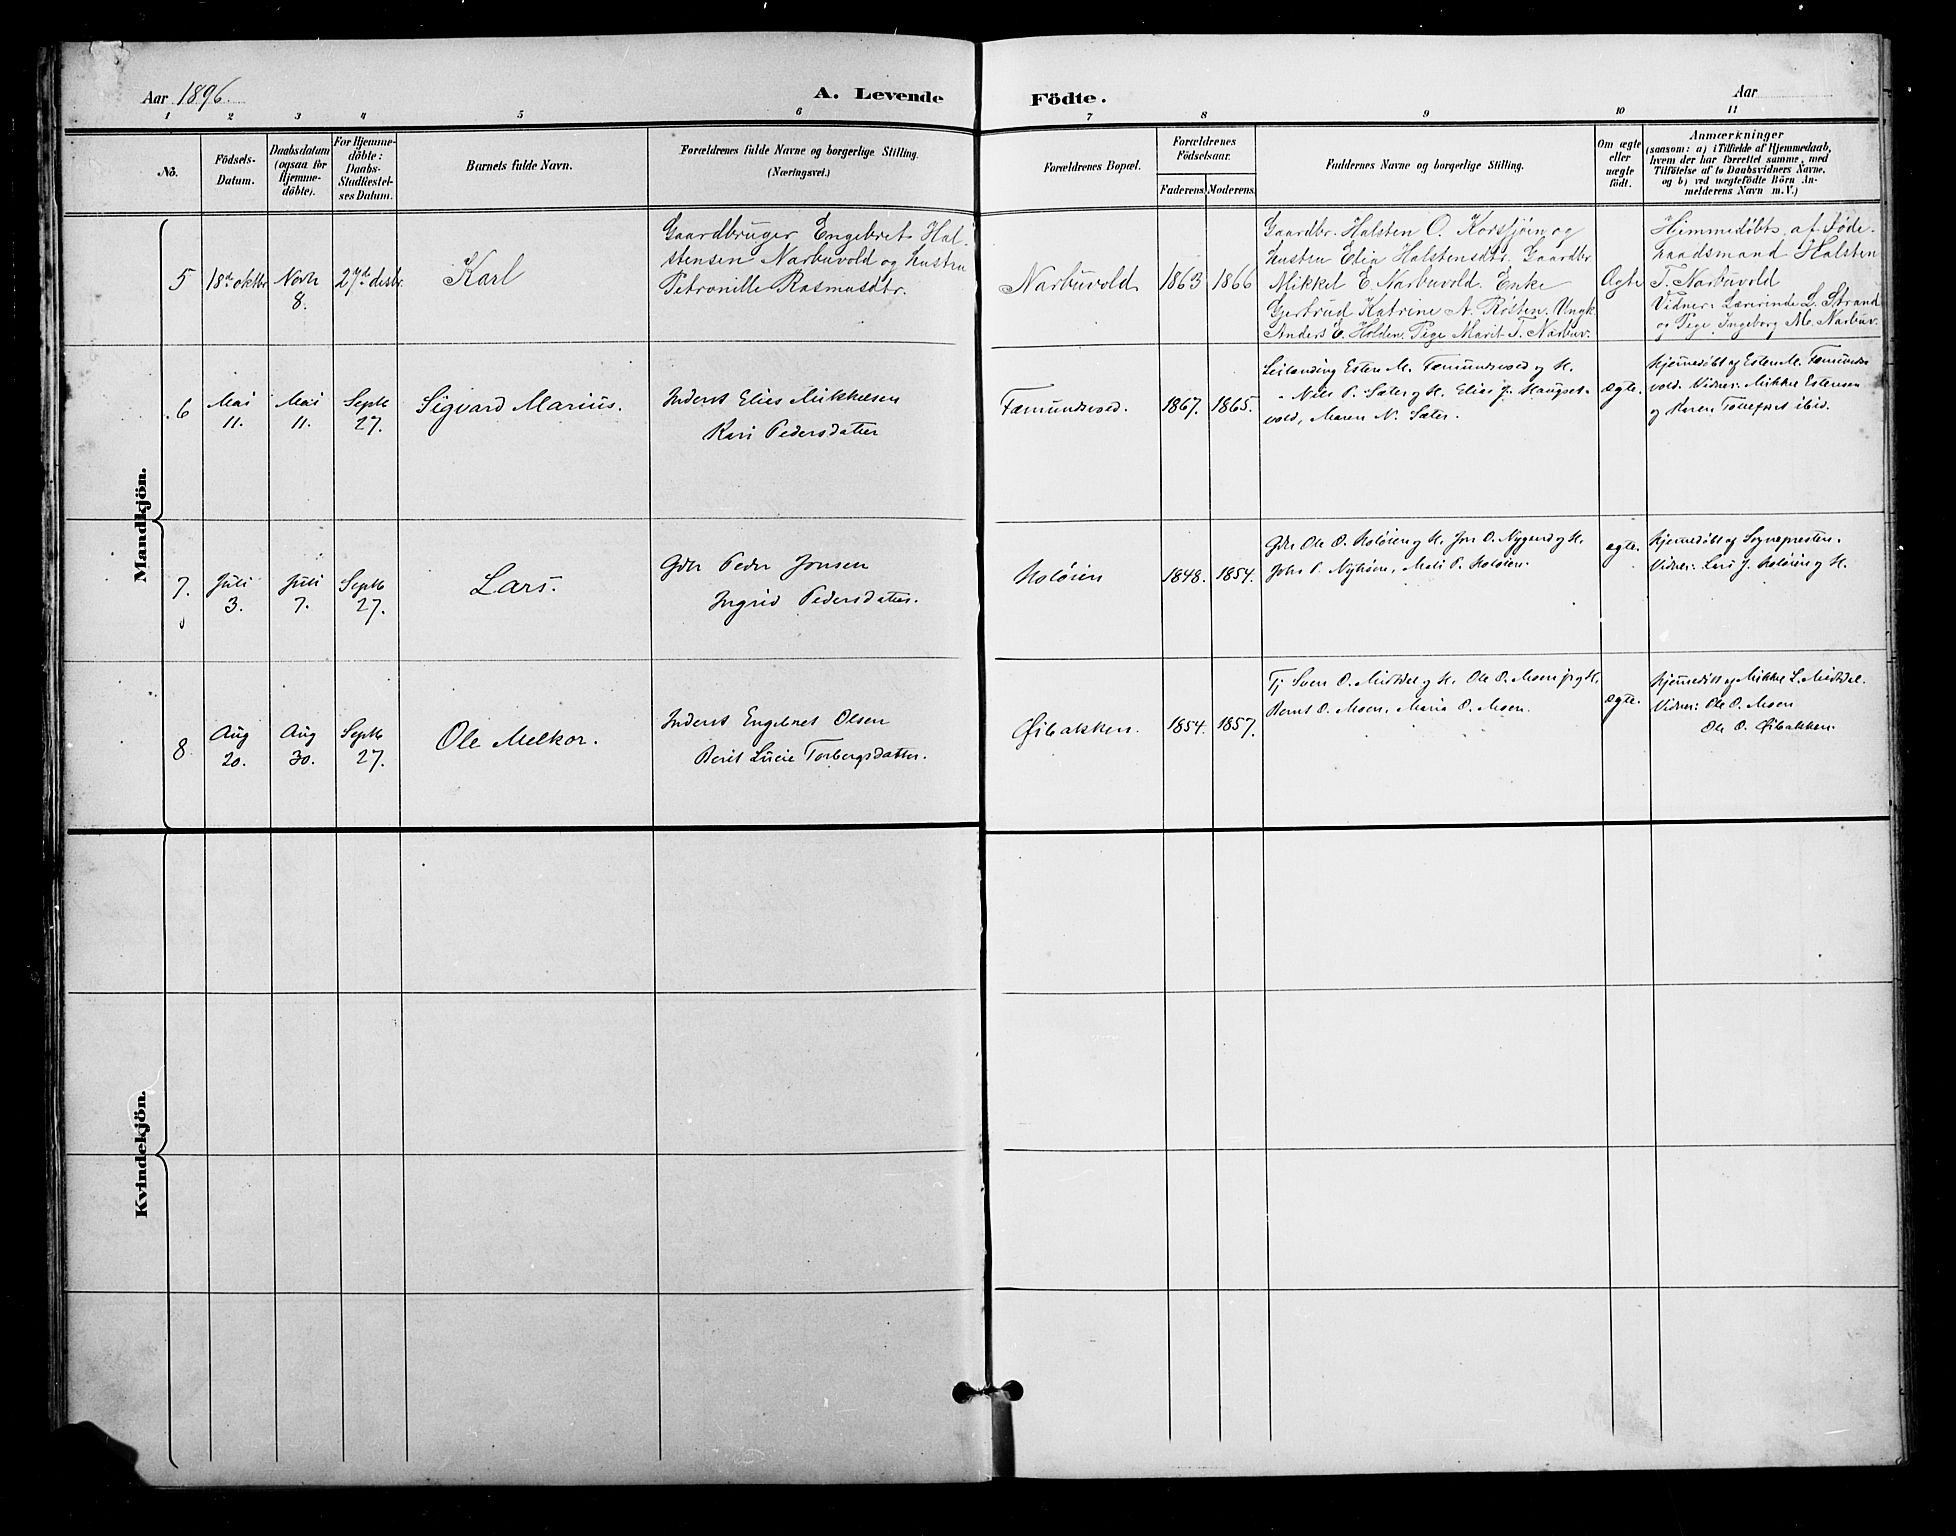 Aar 1896
A. Levende
Födte.
Aar
1 2 3 4 5 6 7 8 9 10 11
No.
Födsels-
Datum.
Daabsdatum
(ogsaa for
Hjemme-
döbte).
For Hjemme-
döbte:
Daabs-
Stadfæstel-
ses Datum.
Barnets fulde Navn.
Forældrenes fulde Navne og borgerlige Stilling.
(Næringsvei.)
Forældrenes Bopæl.
Forældrenes
Födselsaar.
Faderens. Moderens.
Faddernes Navne og borgerlige Stilling.
Om ægte
eller
uægte
födt.
Anmærkninger
(saasom: a) i Tilfælde af Hjemmedaab,
hvem der har forrettet samme, med
Tilföielse af to Daabsvidners Navne,
og b) ved uægtefödte Börn An-
melderens Navn m.V.)
Mandkjön.
5
18de oktbr
Novbr
8.
27de desbr.
Karl
Gaardbruger Engebret Hal-
stensen Narbuvold og hustru
Petronille Rasmusdtr.
Narbuvold
1863
1866
Gaardbr. Halsten O. Korssjøen og
hustru Elia Halstensdtr. Gaardbr
Mikkel E. Narbuvold. Enke
Gjertrud Katrine A. Røsten. Ungk.
Anders E. Holden. Pige Marit T. Narbuv.
Ægte
Himmedøbt af Føde-
raadsmand Halsten
T. Narbuvold
Vidner: Lærerinde L. Strand
og Pige Ingeborg M. Narbuv.
6
Mai
11.
Mai
11.
Septb
27.
Sigvard Marius.
Inderst Elias Mikkelsen
Kari Pedersdatter
Fæmundsvold.
1867.
1865.
Leilænding Esten M. Fæmundsvold og H.
Nils P. Sæter og H. Elias J. Haugset-
vold, Maren N. Sæter.
ægte.
Hjemmedøbt af Esten M. Fæmunds-
vold. Vidner: Mikkel Estensen
og Karen Tollefsret ibid.
7.
Juli
3.
Juli
7.
Septb
27.
Lars.
Gbr Peder Jonsen
Ingrid Pedersdatter.
Holøien
1848.
1854.
Gbr Ole O. Holøien og H. Jon O. Nygaard og H.
John P. Nyhøen, Mali P. Holøien.
ægte.
Hjemmedøbt af Sognepresten.
Vidner: Lars J. Holøien og H.
8
Aug
20.
Aug
30.
Septb
27.
Ole Melkor.
Inderst Engebret Olsen
Berit Lucie Torbergsdatter.
Øibakken.
1854.
1857.
Tj Sven O. Midtdal og H. Ole O. Moen jr og H.
Bernt O. Moen, Maria O. Moen.
ægte.
Hjemmedøbt af Mikkel L. Midtdal.
Vidner: Ole O. Moen
Ole O. Øibakken.
Kvindekjön.